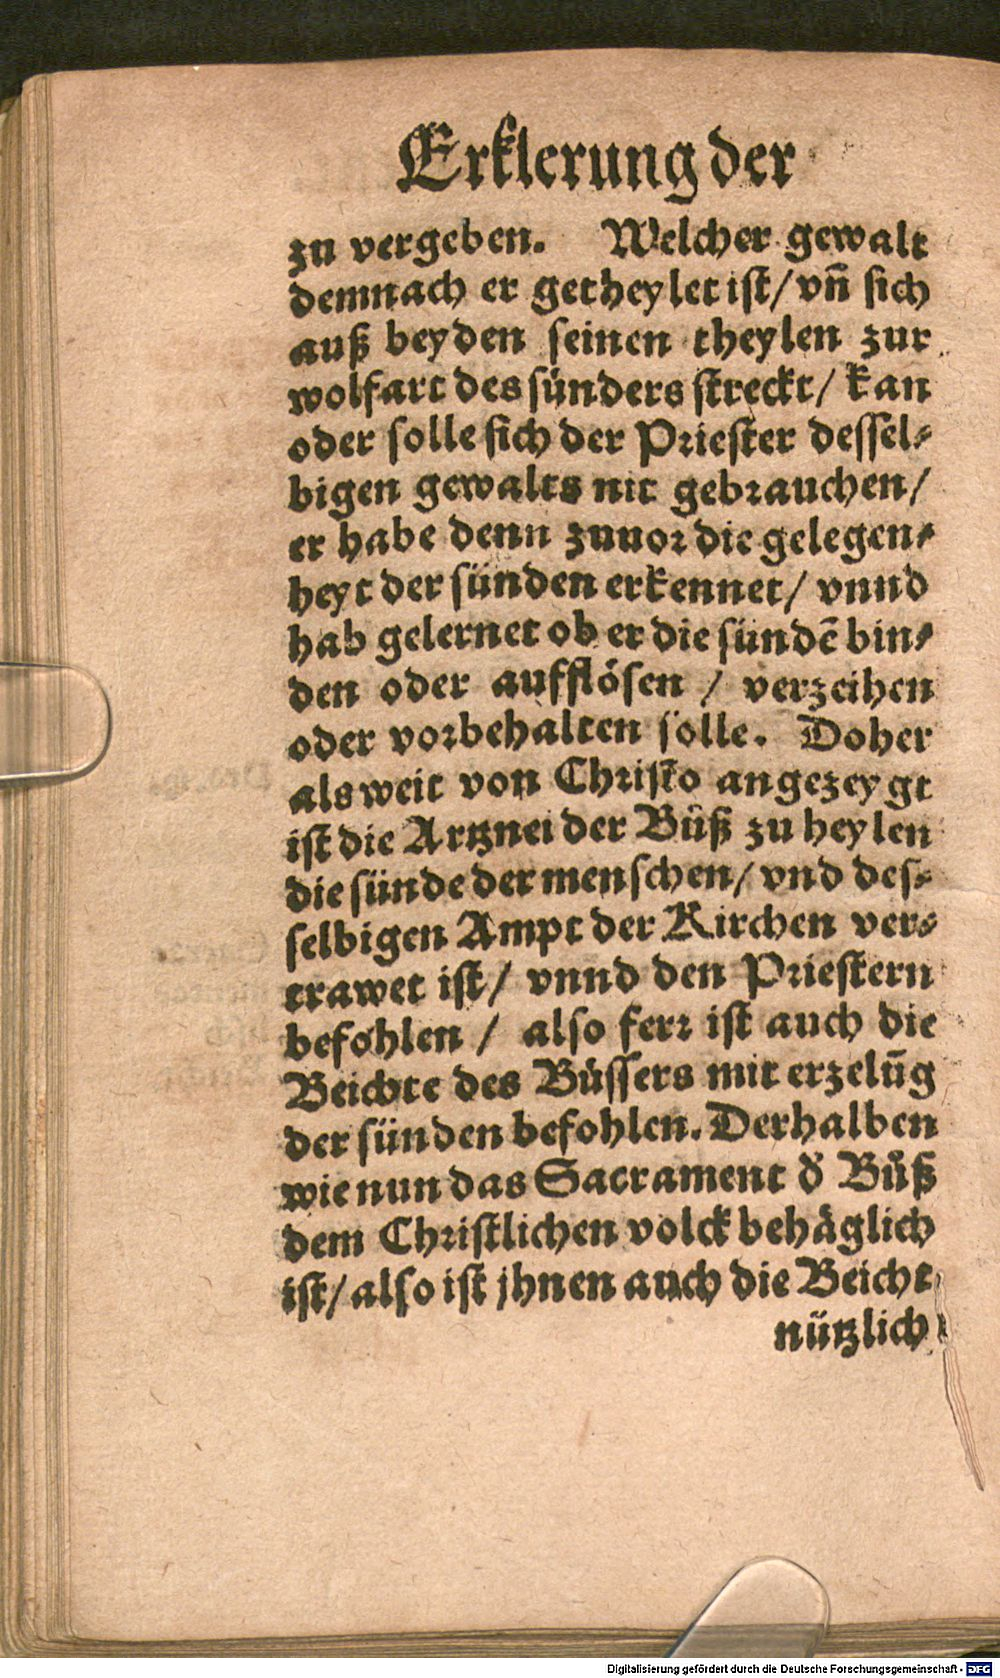 Erklerung der
zu vergeben. Welcher gewalt
demnach er getheylet ist/ vn̄ sich
auß beyden seinen theylen zur
wolfart des sünders streckt/ kan
oder solle sich der Priester dessel⸗
bigen gewalts nit gebrauchen/
er habe denn zuuor die gelegen⸗
heyt der sünden erkennet/ vnnd
hab gelernet ob er die sündē bin⸗
den oder aufflösen / verzeihen
oder vorbehalten solle. Doher
als weit von Christo angezeygt
ist die Artznei der Büß zu heylen
die sünde der menschen/ vnd des⸗
selbigen Ampt der Kirchen ver⸗
trawet ist/ vnnd den Priestern
befohlen / also ferr ist auch die
Beichte des Büssers mit erzelūg
der sünden befohlen. Derhalben
wie nun das Sacrament d̕ Büß
dem Christlichen volck behäglich
ist/ also ist jhnen auch die Beicht
nützlich
Digitalisierung gefördert durch die Deutsche Forschungsgemeinschaft - DFG